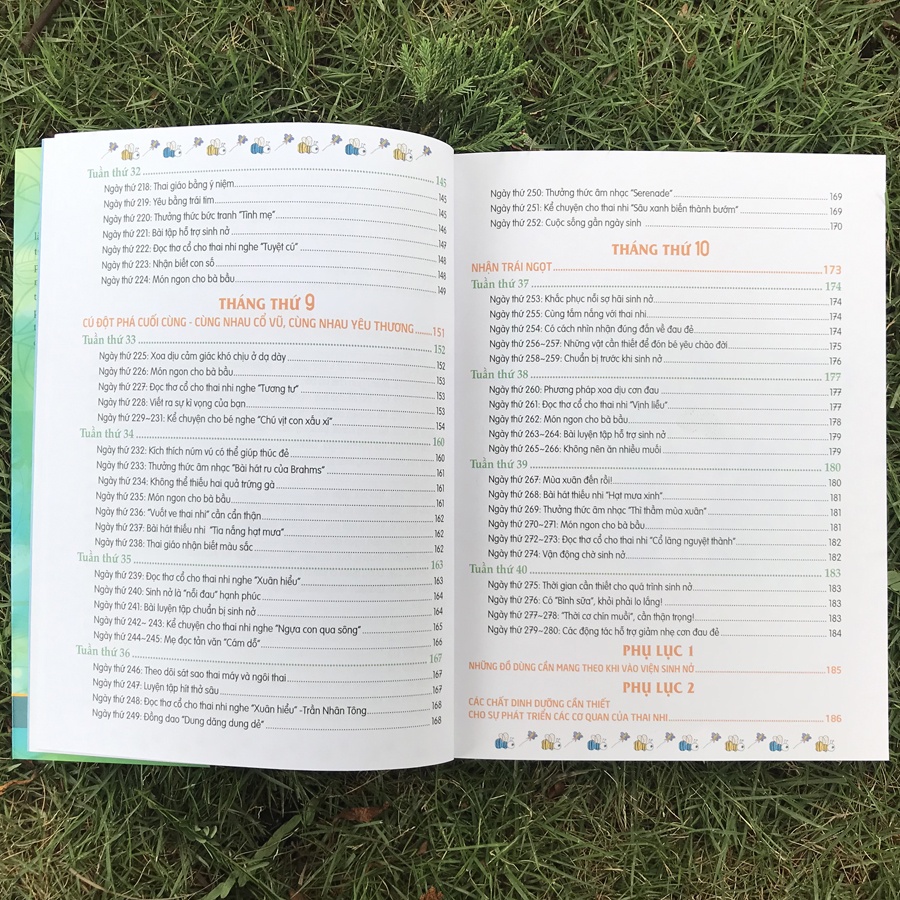 Tuần thứ 32 145
Ngày thứ 218: Thai giáo bằng ý niệm 145
Ngày thứ 219: Yêu bằng trái tim 145
Ngày thứ 220: Thưởng thức bức tranh "Tình mẹ" 146
Ngày thứ 221: Bài tập hỗ trợ sinh nở 147
Ngày thứ 222: Đọc thơ cổ cho thai nhi nghe "Tuyệt cú" 148
Ngày thứ 223: Nhận biết con số 148
Ngày thứ 224: Món ngon cho bà bầu 149
THÁNG THỨ 9
CÚ ĐỘT PHÁ CUỐI CÙNG - CÙNG NHAU CỔ VŨ, CÙNG NHAU YÊU THƯƠNG 151
Tuần thứ 33 152
Ngày thứ 225: Xoa dịu cảm giác khó chịu ở dạ dày 152
Ngày thứ 226: Món ngon cho bà bầu 153
Ngày thứ 227: Đọc thơ cổ cho thai nhi nghe "Tương tư" 153
Ngày thứ 228: Viết ra sự kì vọng của bạn 153
Ngày thứ 229~231: Kể chuyện cho bé nghe "Chú vịt con xấu xí" 154
Tuần thứ 34 160
Ngày thứ 232: Kích thích núm vú có thể giúp thúc đẻ 160
Ngày thứ 233: Thưởng thức âm nhạc "Bài hát ru của Brahms" 161
Ngày thứ 234: Không thể thiếu hai quả trứng gà 161
Ngày thứ 235: Món ngon cho bà bầu 161
Ngày thứ 236: "Vuốt ve thai nhi" cần cẩn thận 162
Ngày thứ 237: Bài hát thiếu nhi "Tia nắng hạt mưa" 162
Ngày thứ 238: Thai giáo nhận biết màu sắc 162
Tuần thứ 35 163
Ngày thứ 239: Đọc thơ cổ cho thai nhi nghe "Xuân hiểu" 163
Ngày thứ 240: Sinh nở là "nỗi đau" hạnh phúc 164
Ngày thứ 241: Bài luyện tập chuẩn bị sinh nở 164
Ngày thứ 242~ 243: Kể chuyện cho thai nhi nghe "Ngựa con qua sông" 165
Ngày thứ 244~245: Mẹ đọc tản văn "Cám dỗ" 166
Tuần thứ 36 167
Ngày thứ 246: Theo dõi sát sao thai máy và ngôi thai 167
Ngày thứ 247: Luyện tập hít thở sâu 167
Ngày thứ 248: Đọc thơ cổ cho thai nhi nghe "Xuân hiểu" -Trần Nhân Tông 168
Ngày thứ 249: Đồng dao "Dung dăng dung dẻ" 168
Ngày thứ 250: Thưởng thức âm nhạc "Serenade" 169
Ngày thứ 251: Kể chuyện cho thai nhi "Sâu xanh biến thành bướm" 169
Ngày thứ 252: Cuộc sống gần ngày sinh 170
THÁNG THỨ 10
NHẬN TRÁI NGỌT 173
Tuần thứ 37 174
Ngày thứ 253: Khắc phục nỗi sợ hãi sinh nở 174
Ngày thứ 255: Cùng tắm nắng với thai nhi 174
Ngày thứ 254: Có cách nhìn nhận đúng đắn về đau đẻ 174
Ngày thứ 256~257: Những vật cần thiết để đón bé yêu chào đời 175
Ngày thứ 258~259: Chuẩn bị trước khi sinh nở 176
Tuần thứ 38 177
Ngày thứ 260: Phương pháp xoa dịu cơn đau 177
Ngày thứ 261: Đọc thơ cổ cho thai nhi "Vịnh liễu" 177
Ngày thứ 262: Món ngon cho bà bầu 178
Ngày thứ 263~264: Bài luyện tập hỗ trợ sinh nở 179
Ngày thứ 265~266: Không nên ăn nhiều muối 179
Tuần thứ 39 180
Ngày thứ 267: Mùa xuân đến rồi! 180
Ngày thứ 268: Bài hát thiếu nhi "Hạt mưa xinh" 181
Ngày thứ 269: Thưởng thức âm nhạc "Thì thầm mùa xuân" 181
Ngày thứ 270~271: Món ngon cho bà bầu 181
Ngày thứ 272~273: Đọc thơ cổ cho thai nhi "Cổ lãng nguyệt thành" 182
Ngày thứ 274: Vận động chờ sinh nở 182
Tuần thứ 40 183
Ngày thứ 275: Thời gian cần thiết cho quá trình sinh nở 183
Ngày thứ 276: Có "Bình sữa", khỏi phải lo lắng! 183
Ngày thứ 277~278: "Thời cơ chín muồi", cẩn thận trọng! 183
Ngày thứ 279~280: Các động tác hỗ trợ giảm nhẹ cơn đau đẻ 184
PHỤ LỤC 1
NHỮNG ĐỒ DÙNG CẦN MANG THEO KHI VÀO VIỆN SINH NỞ 185
PHỤ LỤC 2
CÁC CHẤT DINH DƯỠNG CẦN THIẾT
CHO SỰ PHÁT TRIỂN CÁC CƠ QUAN CỦA THAI NHI 186